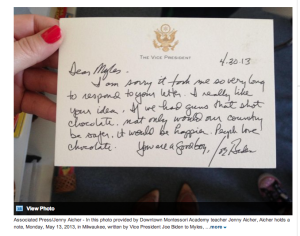 THE VICE PRESIDENT
4/30.13
Dear Myles,
I am sorry it took me so very long
to respond to your letter. I really like
your idea. If we had guns that shot
chocolate, not only would our country
be safer, it would be happier. People love
chocolate.
You are a good boy, Joe Biden
View Photo
Associated Press/Jenny Aicher - In this photo provided by Downtown Montessori Academy teacher Jenny Aicher, Aicher holds a
note, Monday, May 13, 2013, in Milwaukee, written by Vice President Joe Biden to Myles, ... more